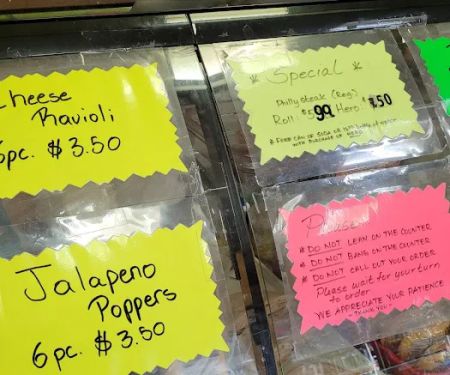 Cheese
Ravioli
6pc. $3.50
Jalapeno
Poppers
6 pc. $3.50
* Special *
Philly steak (Reg)
Roll $5.99 Hero $7.50
* FREE CAN OF SODA OR
WITH PURCHASE OF HERO
Please
* DO NOT LEAN ON THE COUNTER
* DO NOT BANG ON THE COUNTER
* DO NOT CALL OUT YOUR ORDER
Please wait for your turn
to order
WE APPRECIATE YOUR PATIENCE
- THANK YOU -